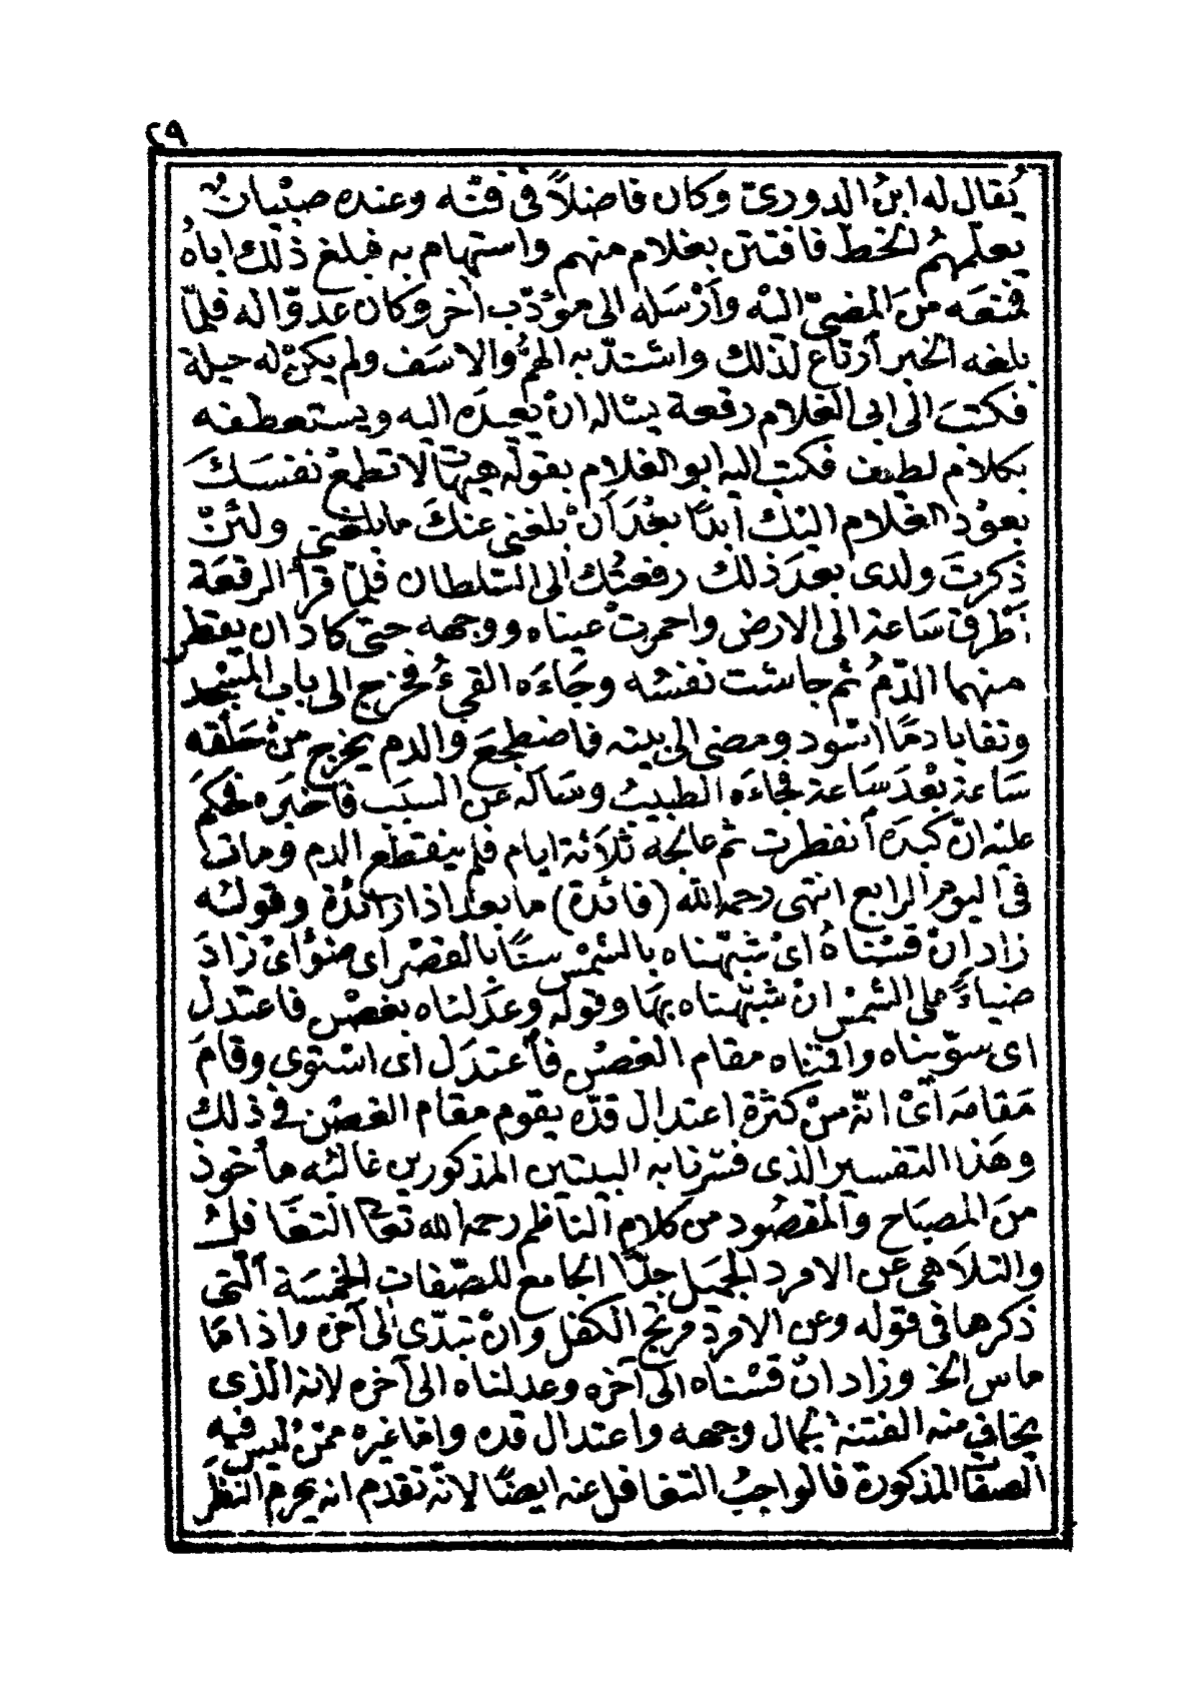 ٢٩
يُقال له ابنُ الدورىّ وكان فاضلاً فى فنّه وعنده صبْيانٌ
يعلّمهُم الخطّ فافتتن بغلام منهم واستهام به فبلغ ذلك اباهُ
فمنعَه منَ المضىّ اليْه وأرْسَله الى مؤدّب آخر وكان عدوّاله فلمّا
بلغه الخبر أرتاع لذلك واشتدّ به الهمُّ والاسَف ولم يكنْ له حيلة
فكتبَ الى ابى الغلام رقعة يسٔاله انْ يعيدَه اليه ويستعطفه
بكلام لطيف فكتب اليه ابو الغلام بقوله هيهاتَ لا تطمعْ نفسَكَ
بعوْد الغلام اليْك أبدًا بعْدَ أنْ بلغنى عنكَ مابلغنى ولئنْ
ذكرتَ ولدى بعدَ ذلك رفعتُك الى السّلطان فلمّا قرأ الرقعَة
أطرق سَاعة الى الارض واحمرتْ عيناه ووجهه حتى كاد ان يقطر
منهما الدّمُ ثم جاشت نفسُه وجَاءَه القىءُ فخرج الى باب المسْجد
وتقايا دمًا اسْود ومضى الى بيته فاضطجعَ والدم يخرج منْ حَلْقه
سَاعة بعْدَ سَاعة فجاءَه الطبيبُ وسَأله عن السّبَب فأخبَره فحكمَ
عليْه انّ كبدَه أنفطرت ثم عالجه ثلاثة ايام فلم ينقطع الدم وماتَ
فى اليوم الرابع انتهى رحمه الله (فائدة) ما بعد اذا زائدة وقولُه
زاد انْ قسْناهُ اىْ شبّهناه بالشمْس سنًا بالقصْر اى ضوْأ اىْ زادَ
ضياءً على الشمْس انْ شبّهناه بهَا وقوله وعدَلناه بغصْن فاعتدلْ
اى سوّيناه واقمْناه مقام الغصْن فأعتدَل اى اسْتوى وقامَ
مَقامَه اىْ انّه منْ كثرة اعتدال قدّه يقوم مقام الغصْن فى ذلك
وهَذا التفسير الذى فسّرنا به البيتين المذكورين غالبُه مأخوذ
منَ المصبَاح والمقصُود من كلام النّاظم رحمه الله تعَا التغَافلُ
والتلاَهى عن الامرد الجميل جدًّا الجامع للصّفات الخمْسَة التى
ذكرها فى قوله وعن الامرد مرتج الكفل وانْ تبدّى الى آخره واذا مَا
ماس الخ وزاد انْ قسْناه الى آخره وعدلناه الى آخره لانه الّذى
يخاف منه الفتنةُ بجمال وجهه واعتدال قده وامّا غيره ممّنْ ليْس فيه
الصفَا المذكورة فالواجبُ التغافل عنه ايضًا لانّه تقدم انه يحرم النّظَر